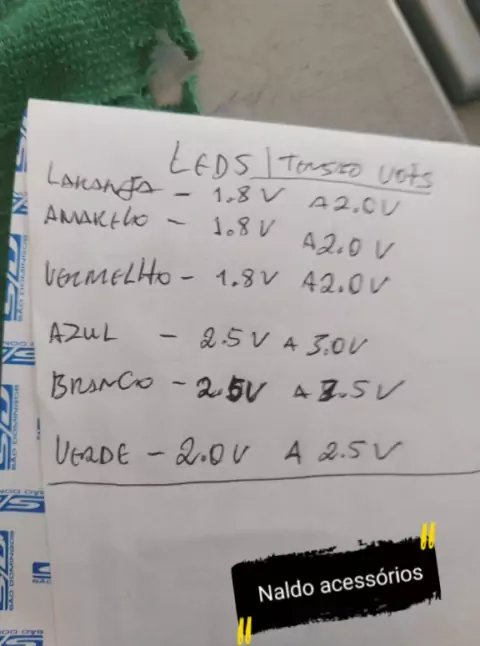 LEDS | TENSÃO VOTS
LARANJA - 1.8 V A 2.0V
AMARELO - 1.8 V A 2.0 V
VERMELHO - 1.8 V A 2.0 V
AZUL - 2.5 V A 3.0V
BRANCO - 2.5V A 3.5V
VERDE - 2.0 V A 2.5V
SÃO DOMINGOS
SÃO DOMINGOS
"Naldo acessórios"